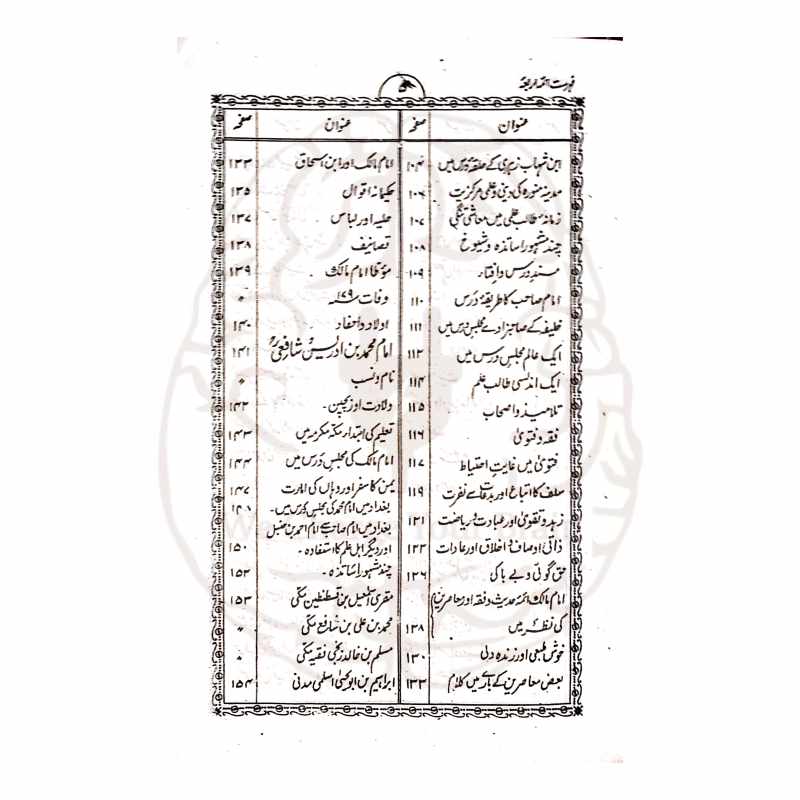 فہرست ائمہ اربعہ
۵
عنوان صفحہ
ابن شہاب زہری کے حلقۂ درس میں ۱۰۴
مدینہ منورہ کی دینی وعلمی مرکزیت ۱۰۶
زمانۂ طالب علمی میں معاشی تنگی ۱۰۷
چند مشہور اساتذہ وشیوخ ۱۰۸
مسندِ درس وافتار ۱۰۹
امام صاحب کا طریقۂ درس ۱۱۰
خلیفہ کے صاحبزادے مجلس درس میں ۱۱۱
ایک عالم مجلس درس میں ۱۱۲
ایک اندلسی طالب علم ۱۱۴
تلامیذ واصحاب ۱۱۵
فقہ وفتویٰ ۱۱۶
فتویٰ میں غایتِ احتیاط ۱۱۷
سلف کا اتباع اور بدعات سے نفرت ۱۱۹
زہد وتقویٰ اور عبادت وریاضت ۱۲۱
ذاتی اوصاف و اخلاق اور عادات ۱۲۲
حق گوئی و بے باکی ۱۲۶
امام مالک ائمۂ حدیث وفقہ اور معاصرین
کی نظر میں ۱۲۸
خوش طبعی اور زندہ دلی ۱۳۰
بعض معاصرین کے بارے میں کلام ۱۳۲
عنوان صفحہ
امام مالک اور ابن اسحاق ۱۳۳
حکیمانہ اقوال ۱۳۵
حلیہ اور لباس ۱۳۷
تصانیف ۱۳۸
مؤطا امام مالک ۱۳۹
وفات ۱۷۹ھ 〃
اولاد واحفاد ۱۴۰
امام محمد بن ادریس شافعیؒ ۱۴۱
نام ونسب 〃
ولادت اور بچپن۔ ۱۴۲
تعلیم کی ابتداء مکہ مکرمہ میں ۱۴۳
امام مالک کی مجلس درس میں ۱۴۴
یمن کا سفر اور وہاں کی امارت ۱۴۷
بغداد میں امام محمد کی مجلس درس میں۔ ۱۴۸
بغداد میں امام صاحب سے امام احمد بن حنبل
اور دیگر اہل علم کا استفادہ۔ ۱۵۰
چند مشہور اساتذہ۔ ۱۵۲
مقری اسمٰعیل بن قسطنطین مکی ۱۵۳
محمد بن علی بن شافع مکی 〃
مسلم بن خالد زنجی فقیہ مکی 〃
ابراہیم بن ابو یحییٰ اسلمی مدنی ۱۵۴